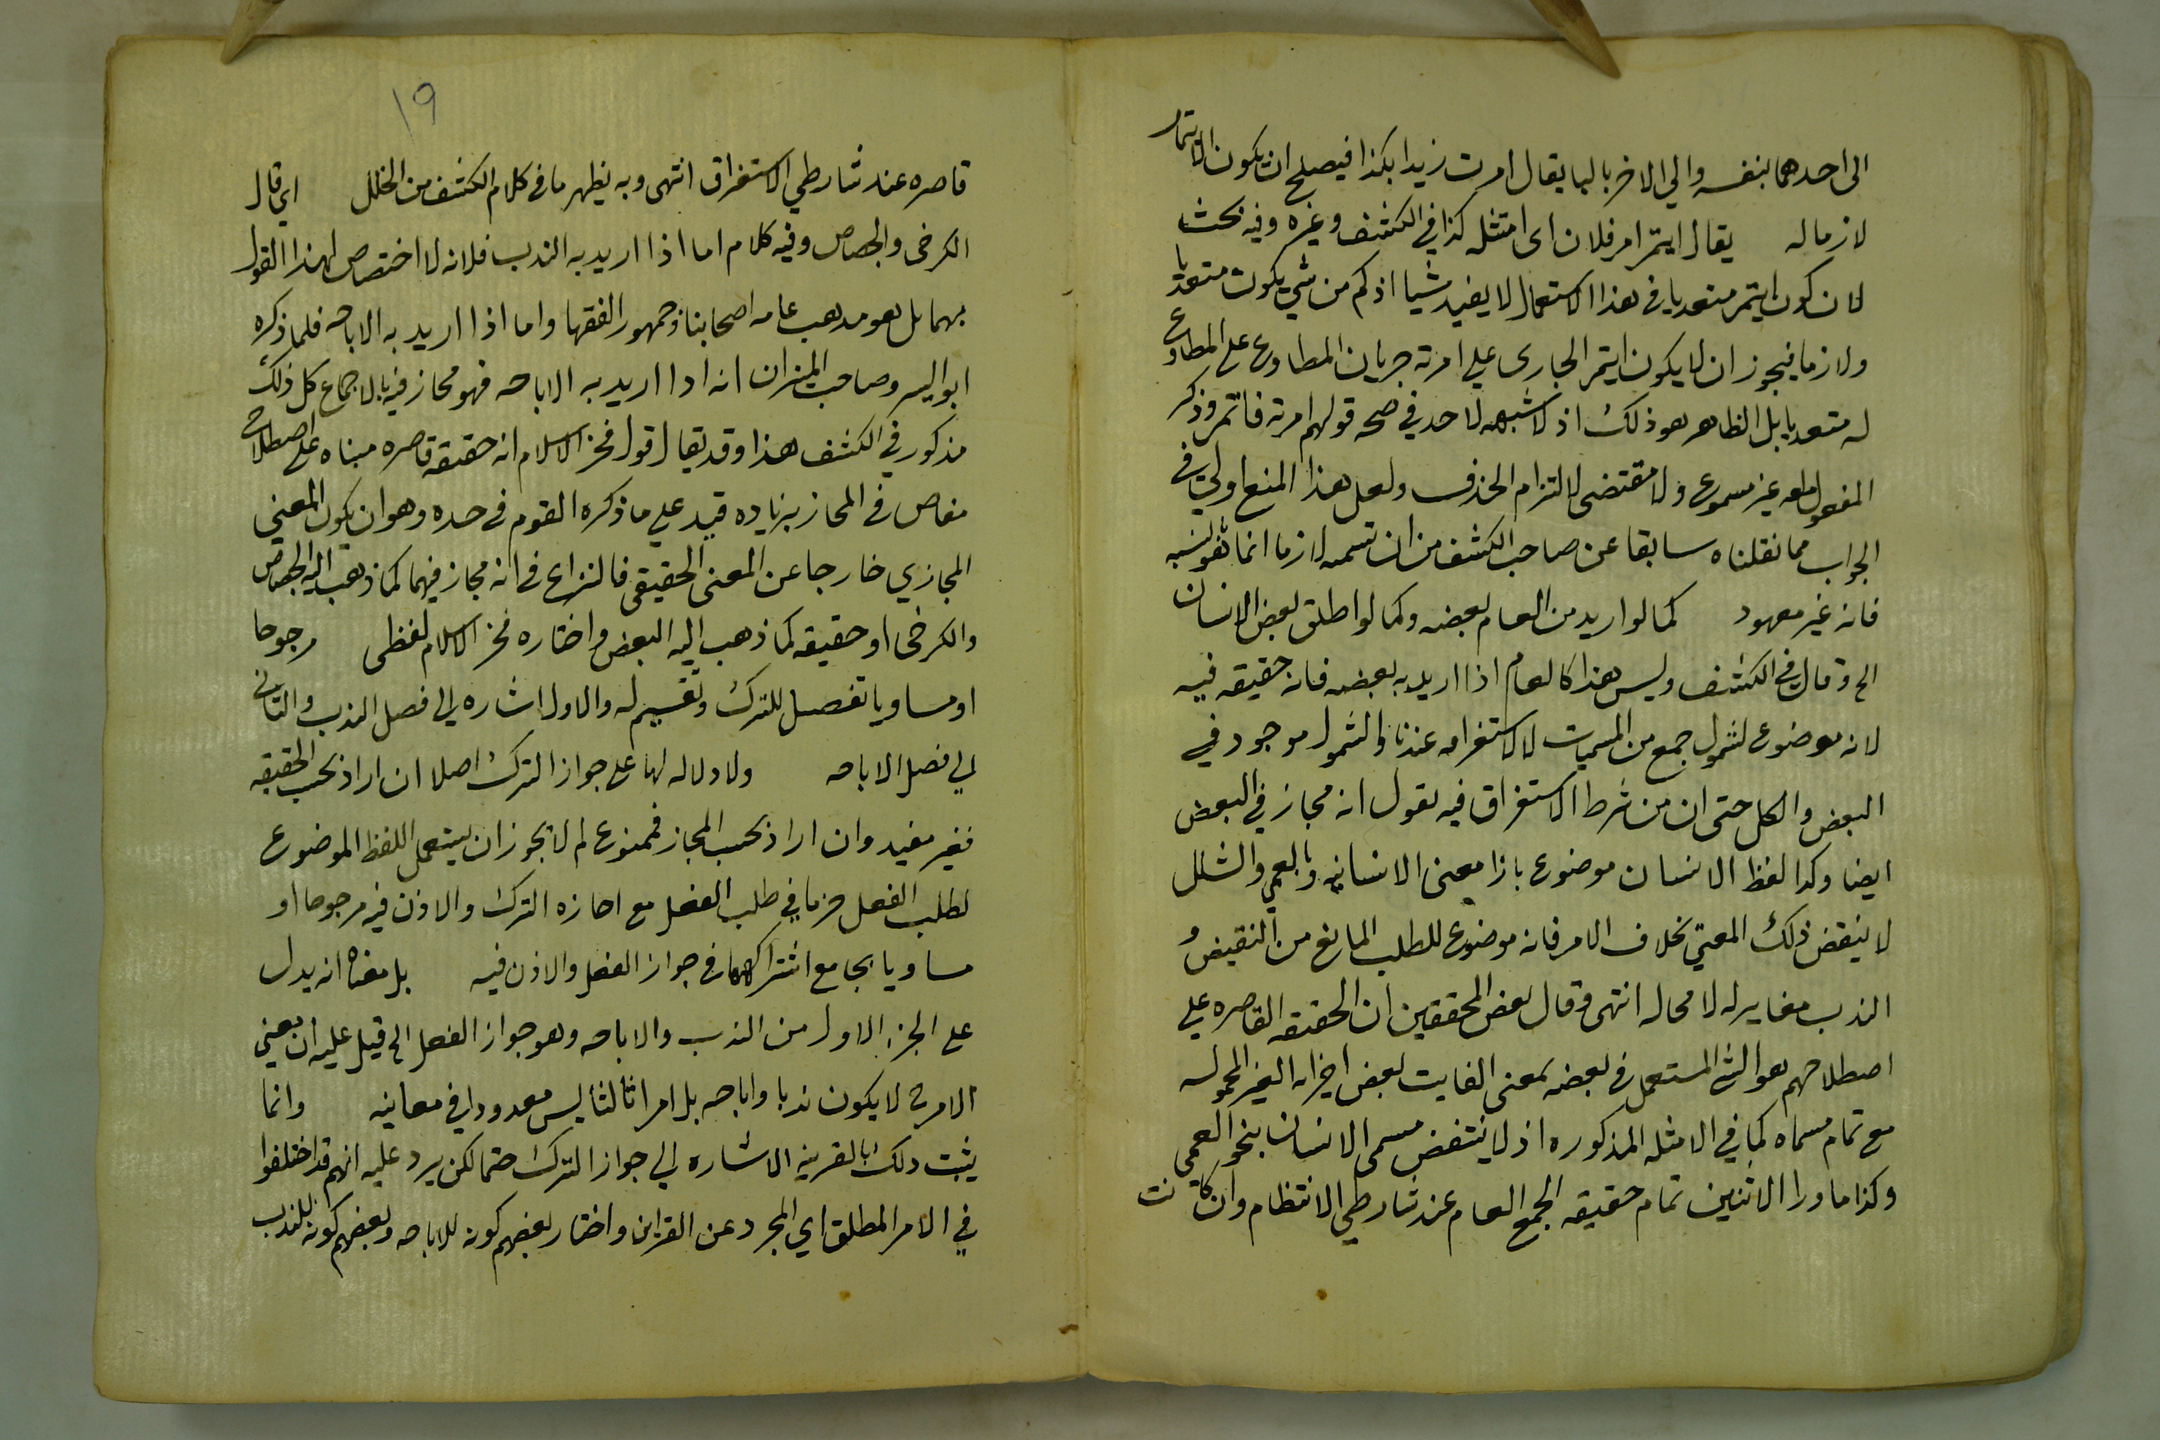 الى احدهما بنفسه والي الاخر بالبا يقال امرت زيدا بكذا فيصلح ان يكون الايتمار
لازما له يقال ايتمر امر فلان اى امتثله كذا في الكشف وغيره وفيه بحث
لان كون ايتمر متعديا في هذا الاستعمال لا يفيد شيا اذ كم من شي يكون متعديا
ولازما فيجوز ان لا يكون ايتمر الجارى علي امرته جريان المطاوع على المطاوع
له متعديا بل الظاهر هو ذلك اذ لا شبهه لاحد في صحه قولهم امرته فاتمر وذكر
المفعول معه غير مسموع ولا مقتضى لالتزام الحذف ولعل هذا المنع اولي في
الجواب مما نقلناه سابقا عن صاحب الكشف من ان تسميه لازما انما هو لشبه
فانه غير معهود كما لو اريد من العام بعضه وكما لو اطلق بعض الانسان
الخ وقال في الكشف وليس هذا كالعام اذا اريد به بعضه فانه حقيقه فيه
لانه موضوع لشمول جمع من المسميات لا لاستغراقه عندنا والشمول موجود في
البعض والكل حتى ان من شرط الاستغراق فيه يقول انه مجاز في البعض
ايضا وكذا لفظ الانسان موضوع بازا معنى الانسانيه وبالعمي والشلل
لا ينقض ذلك المعنى بخلاف الامر فانه موضوع للطلب المانع من النقيض و
الندب مغاير له لا محاله انتهى وقال بعض المحققين ان الحقيقه القاصره علي
اصطلاحهم هو الشي المستعمل في بعضه بمعنى الفايت بعض اجزايه الغير المحموله
مع تمام مسماه كما في الامثله المذكوره اذ لا ينتقض مسمى الانسان بنحو العمى
وكذا ما ورا الاثنين تمام حقيقه الجمع العام عند شارطي الانتظام وان كانت
١٩
قاصره عند شارطي الاستغراق انتهى وبه يظهر ما في كلام الكشف من الخلل اى قال
الكرخى والجصاص وفيه كلام اما اذا اريد به الندب فلانه لا اختصاص لهذا القول
بهما بل هو مدهب عامه اصحابنا وجمهور الفقها واما اذا اريد به الاباحه فلما ذكره
ابو اليسر وصاحب الميزان انه اذا اريد به الاباحه فهو مجاز فيه بالاجماع كل ذلك
مذكور في الكشف هذا وقد يقال قول فخر الاسلام انه حقيقه قاصره مبناه على اصطلاح
خاص في المجاز بزياده قيد علي ما ذكره القوم في حده وهو ان يكون المعنى
المجازي خارجا عن المعنى الحقيقى فالنزاع في انه مجاز فيهما كما ذهب اليه الجصاص
والكرخى او حقيقه كما ذهب اليه البعض واختاره فخر الاسلام لفظى مرجوحا
او مساويا تفصيل للترك وتقسيم له والاول اشاره الي فصل الندب والثاني
الي فصل الاباحه ولا دلاله لها على جواز الترك اصلا ان اراد بحسب الحقيقه
فغير مفيد وان اراد بحسب المجاز فممنوع لم لا يجوز ان يستعمل اللفظ الموضوع
لطلب الفعل جزما في طلب الفعل مع اجازه الترك والاذن فيه مرجوحا او
مساويا بجامع اشتراكهما في جواز الفعل والاذن فيه بل معناه انه يدل
على الجزء الاول من الندب والاباحه وهو جواز الفعل الخ قيل عليه ان معنى
الامر ح لا يكون ندبا واباحه بل امرا ثالثا ليس معدودا في معانيه وانما
يثبت دلك بالقرينه الاشاره الي جواز الترك حتما لكن يرد عليه انهم قد اختلفوا
في الامر المطلق اي المجرد عن القراين واختار بعضهم كونه للاباحه وبعضهم كونه للندب